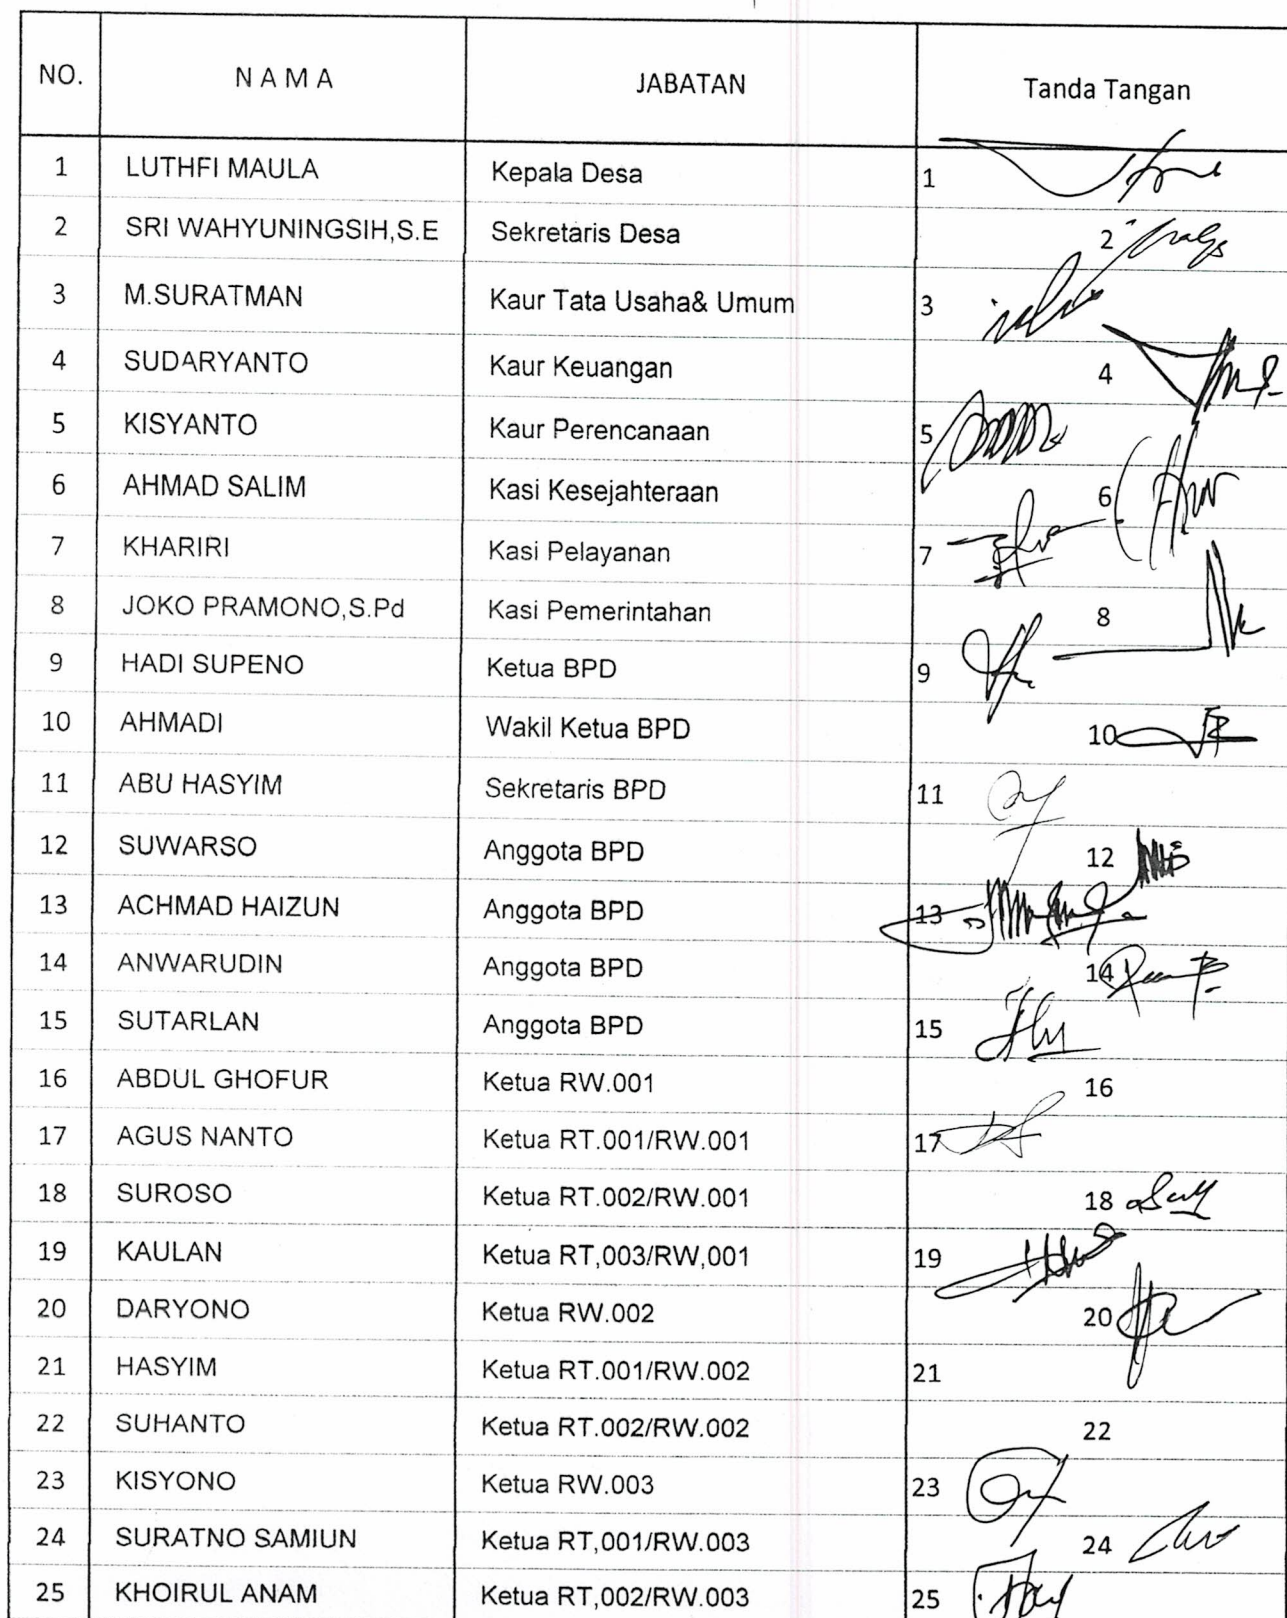 NO. N A M A JABATAN Tanda Tangan
1 LUTHFI MAULA Kepala Desa 1
2 SRI WAHYUNINGSIH,S.E Sekretaris Desa 2
3 M.SURATMAN Kaur Tata Usaha& Umum 3
4 SUDARYANTO Kaur Keuangan 4
5 KISYANTO Kaur Perencanaan 5
6 AHMAD SALIM Kasi Kesejahteraan 6
7 KHARIRI Kasi Pelayanan 7
8 JOKO PRAMONO,S.Pd Kasi Pemerintahan 8
9 HADI SUPENO Ketua BPD 9
10 AHMADI Wakil Ketua BPD 10
11 ABU HASYIM Sekretaris BPD 11
12 SUWARSO Anggota BPD 12
13 ACHMAD HAIZUN Anggota BPD 13
14 ANWARUDIN Anggota BPD 14
15 SUTARLAN Anggota BPD 15
16 ABDUL GHOFUR Ketua RW.001 16
17 AGUS NANTO Ketua RT.001/RW.001 17
18 SUROSO Ketua RT.002/RW.001 18
19 KAULAN Ketua RT,003/RW,001 19
20 DARYONO Ketua RW.002 20
21 HASYIM Ketua RT.001/RW.002 21
22 SUHANTO Ketua RT.002/RW.002 22
23 KISYONO Ketua RW.003 23
24 SURATNO SAMIUN Ketua RT,001/RW.003 24
25 KHOIRUL ANAM Ketua RT,002/RW.003 25